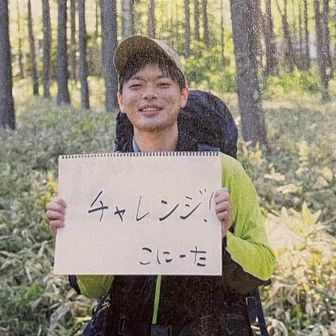 チャレンジ!
こにーた